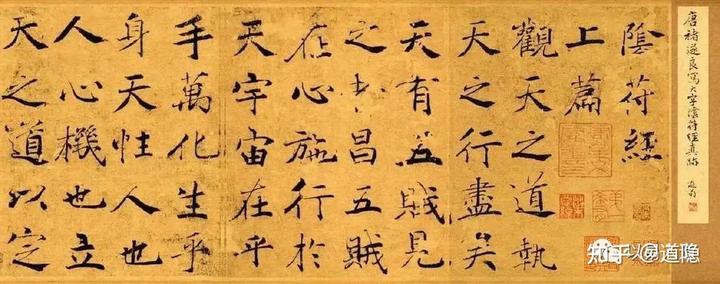 唐褚遂良寫大字陰符經真跡 遐翁
陰符經
上篇
觀天之道執
天之行盡矣
天有五賊見
之者昌五賊
在心施行於
天宇宙在乎
手萬化生乎
身天性人也
人心機也立
天之道以定
知乎 @道隐